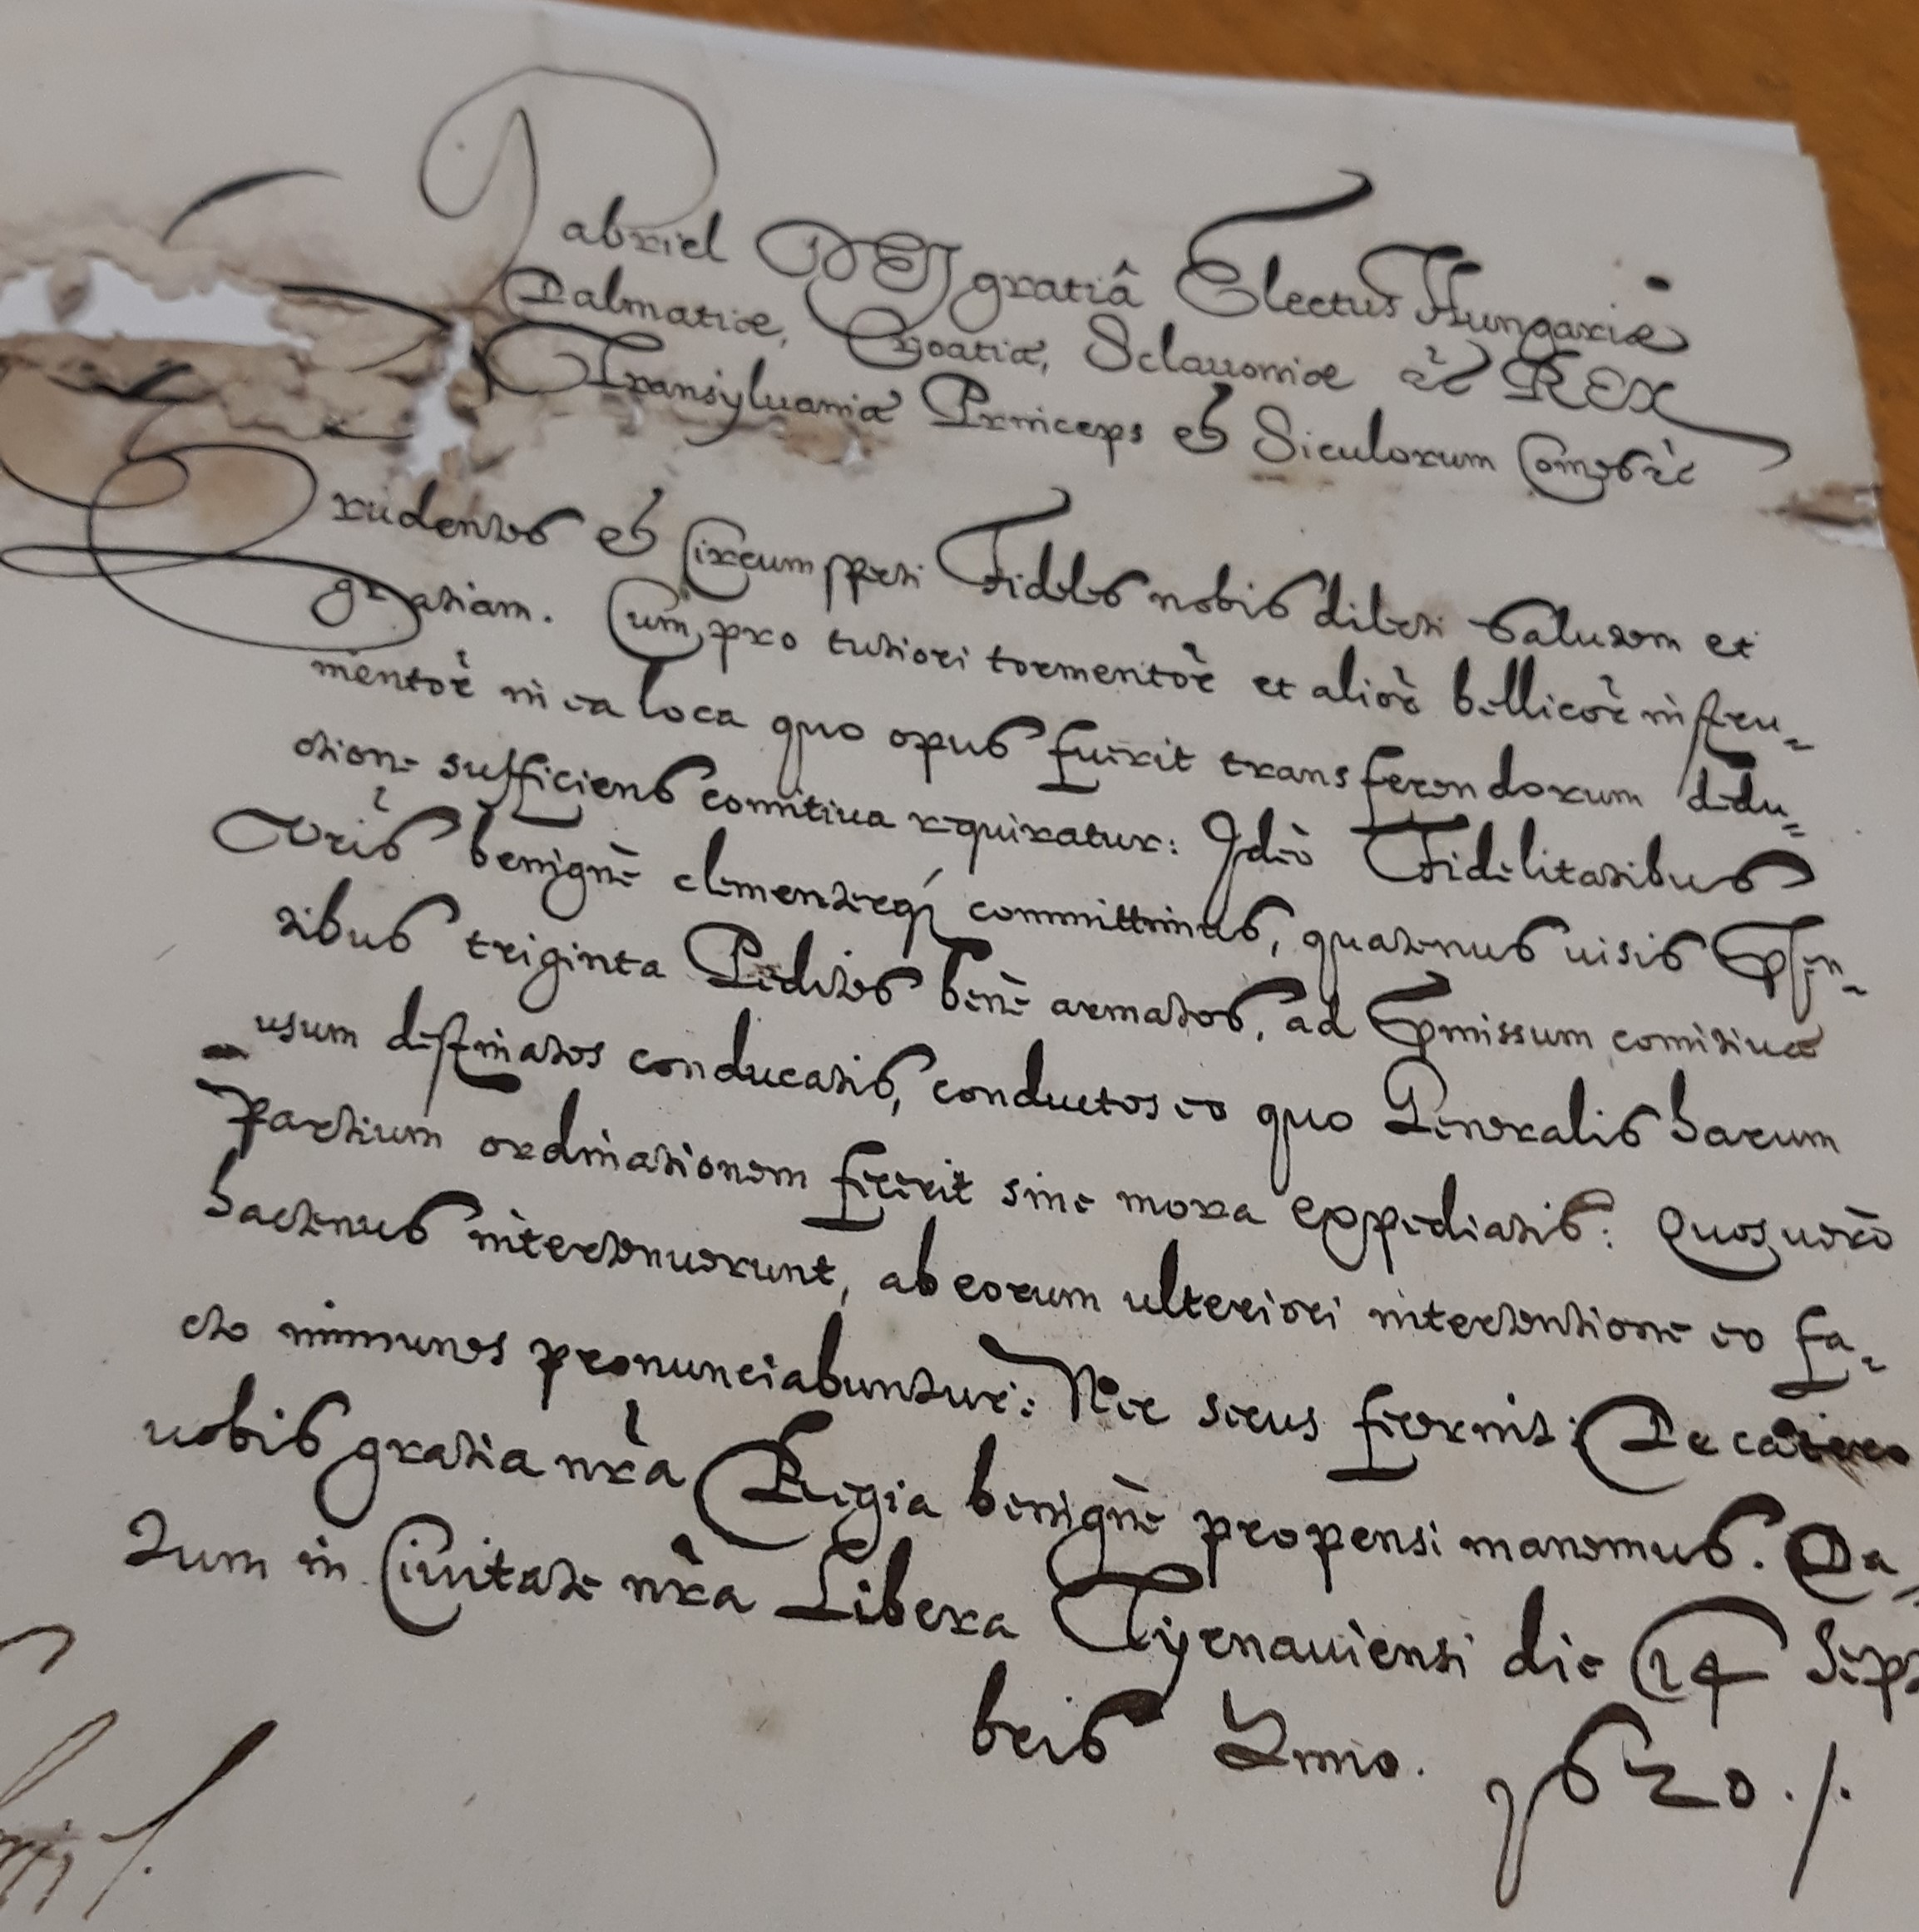 Gabriel DEI gratiâ Electus Hungariæ
Dalmatiæ, Croatiæ, Sclauoniæ &c REX
Transyluaniæ Princeps et Siculorum Comes &c
Prudentes et Circumspecti Fideles nobis dilecti Salutem et
gratiam. Cum pro tutiori tormentor̃ et alior̃ bellicor̃ instru=
mentor̃ in ea loca quo opus fuerit transferendorum dedu=
ctione sufficiens comitiua requiratur: Ideò Fidelitatibus
Vr̃is benignè clementerq́; committimus, quatenus uisis p̃sen=
tibus triginta Pedites benè armatos, ad p̃missum comitiuæ
usum destinatos conducatis, conductos eo quo Generalis harum
partium ordinationem fecerit sine mora expediatis: Quos uerò
hactenus intertenuerunt, ab eorum ulteriori intertentione eo fa=
cto immunes pronunciabuntur: Nec secus fecerint: De cætero
uobis gratia nr̃a Regia benignè propensi manemus. Da=
tum in Ciuitate nr̃a Libera Tyrnauiensi die 14 Septem
bris Anno. 1620./.